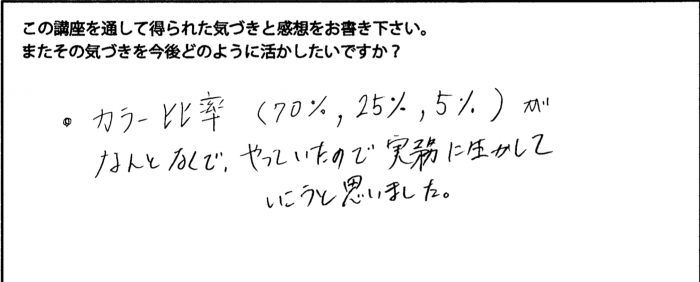 この講座を通して得られた気づきと感想をお書き下さい。
またその気づきを今後どのように活かしたいですか？
。カラー比率（70%,25%,5%）が
なんとなくで、やっていたので実務に生かして
いこうと思いました。